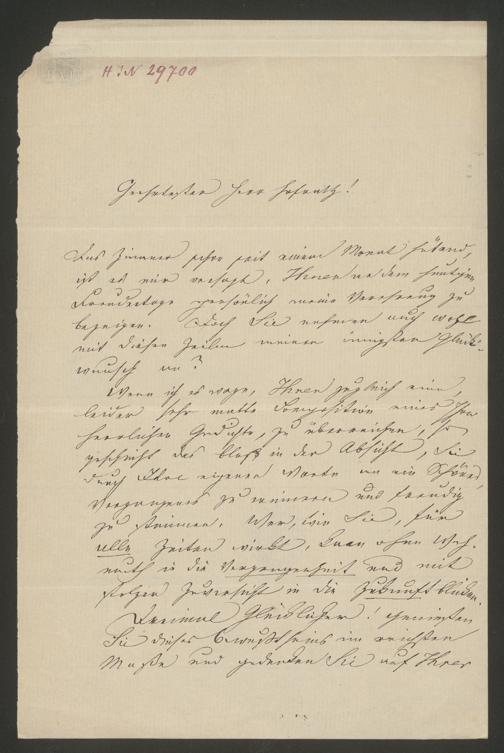 H.I.N 29700
Geehrtester Herr Hofrath!
Das Zimmer schon seit einem Monat hütend,
ist es mir versagt, Ihnen an dem heutigen
Freudentage persönlich meine Verehrung zu
bezeigen. Doch Sie nehmen auch wohl
mit diesen Zeilen meinen innigsten Glück-
wunsch an?
Wenn ich es wage, Ihnen zugleich eine,
leider sehr matte Composition eines Ihrer
herrlichen Gedichte, zu überreichen, so
geschieht das bloß in der Absicht, Sie
durch Ihre eigenen Worte an ein Schönes
Vergangenes zu erinnern und freudig
zu stimmen. Wer, wie Sie, für
alle Zeiten wirkt, kann ohne Weh-
muth in die Vergangenheit und mit
stolzer Zuversicht in die Zukunft blicken.
Dreimal Glücklicher! genießen
Sie dieses Bewußtseins im reichsten
Maße und gedenken Sie auf Ihrer